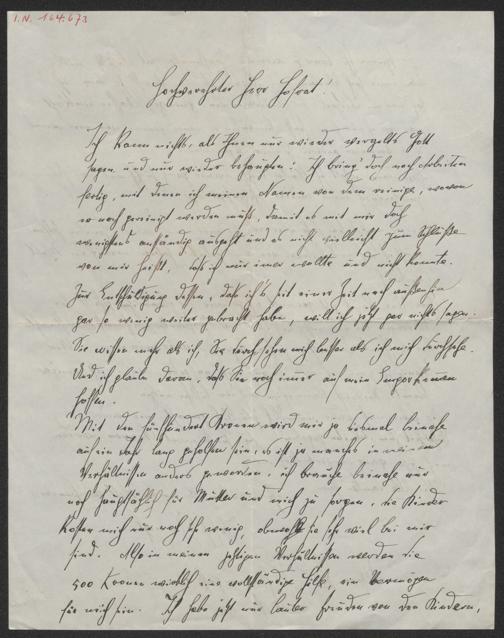 I.N. 164.673
Hochverehrter Herr Hofrat!
Ich kann nichts, als Ihnen nur wieder vergelts Gott
sagen und nur wieder behaupten: Ich bring' doch noch Arbeiten
fertig, mit denen ich meinen Namen von dem reinige, wovon
er noch gereinigt werden muß, damit es mit mir doch
wenigstens anständig ausgeht und es nicht vielleicht zum Schlusse
von mir heißt, daß ich nur immer wollte und nicht konnte.
Zur Entschuldigung dessen, daß ich's seit einer Zeit nach außen hin
gar so wenig weiter gebracht habe, will ich jetzt gar nichts sagen.
Sie wissen mehr als ich, Sie durchsehen mich besser als ich mich durchsehe.
Und ich glaube daran, daß Sie noch immer auf mein Emporkommen
hoffen.
Mit den fünfhundert Kronen wird mir ja diesmal beinahe
auf ein Jahr lang geholfen sein, es ist ja manches in meinen
Verhältnissen anders geworden, ich brauche beinahe nur
noch hauptsächlich für Mutter und mich zu sorgen, die Kinder
kosten mich nur noch sehr wenig, obwohl sie sehr viel bei mir
sind. Also in meinen jetzigen Verhältnissen werden die
500 Kronen wirklich eine vollständige Hilfe, ein Vermögen
für mich sein. Ich habe jetzt nur lauter Freuden von den Kindern,